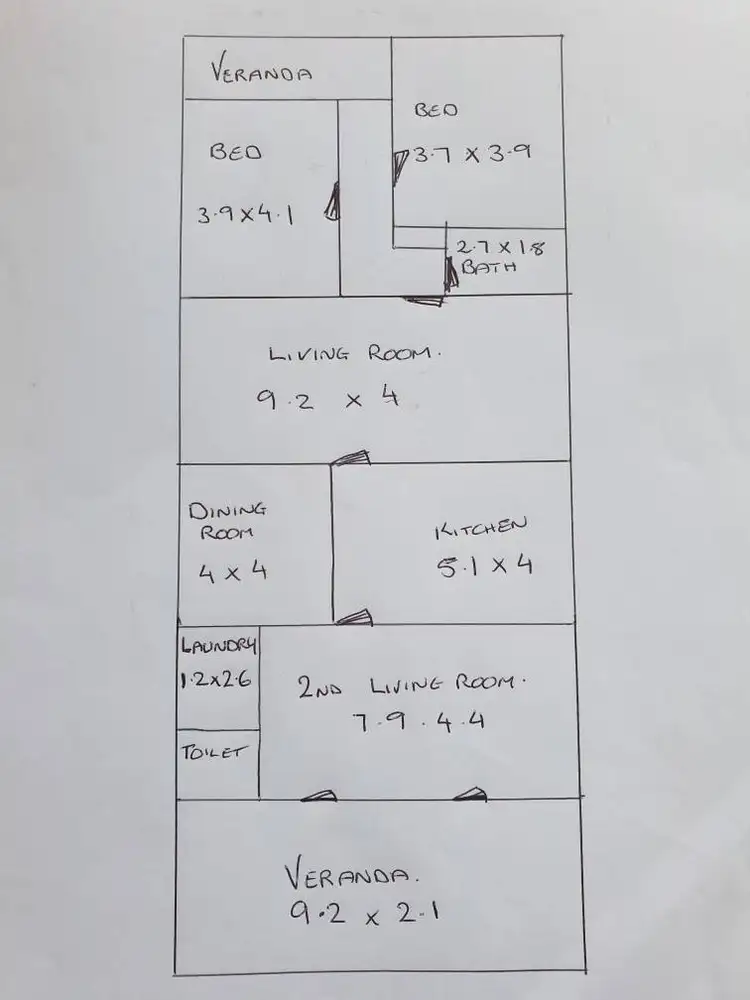 VERANDA
BED
3.7 X 3.9
BED
3.9 X 4.1
2.7 X 1.8
BATH
LIVING ROOM.
9.2 X 4
DINING
ROOM
4 X 4
KITCHEN
5.1 X 4
LAUNDRY
1.2 X 2.6
2ND LIVING ROOM.
7.9.4.4
TOILET
VERANDA.
9.2 X 2.1